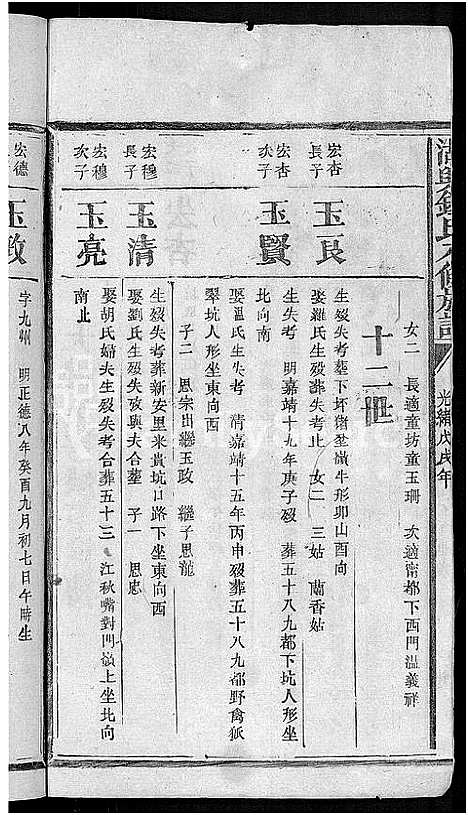 清�鍾氏六修族譜
光緒戊戌年
女二 長適童坊童玉珊 次適甯都下西門溫義祥
十二世
宏杏長子
玉良
生歿失考葬下坏猪坌嶺牛形卯山酉向
娶羅氏生歿葬失考止 女二 三姑 蘭香姑
宏杏次子
玉賢
生失考 明嘉靖十九年庚子歿 葬五十八九都下坑人形坐
北向南
娶溫氏生失考 清嘉靖十五年丙申歿葬五十八九都野禽狐
翠坑人形坐東向西
子二 思宗出繼玉政 繼子思龍
宏穆長子
玉清
生歿失考葬新安里米貴坑口路下坐東向西
娶劉氏生歿失攷與夫合葬 子一 思忠
宏穆次子
玉亮
娶胡氏婦夫生歿失考合葬五十三 江秋嘴對門嶺上坐北向
南止
宏德
玉政
字九州 明正德八年癸酉九月初七日午時生